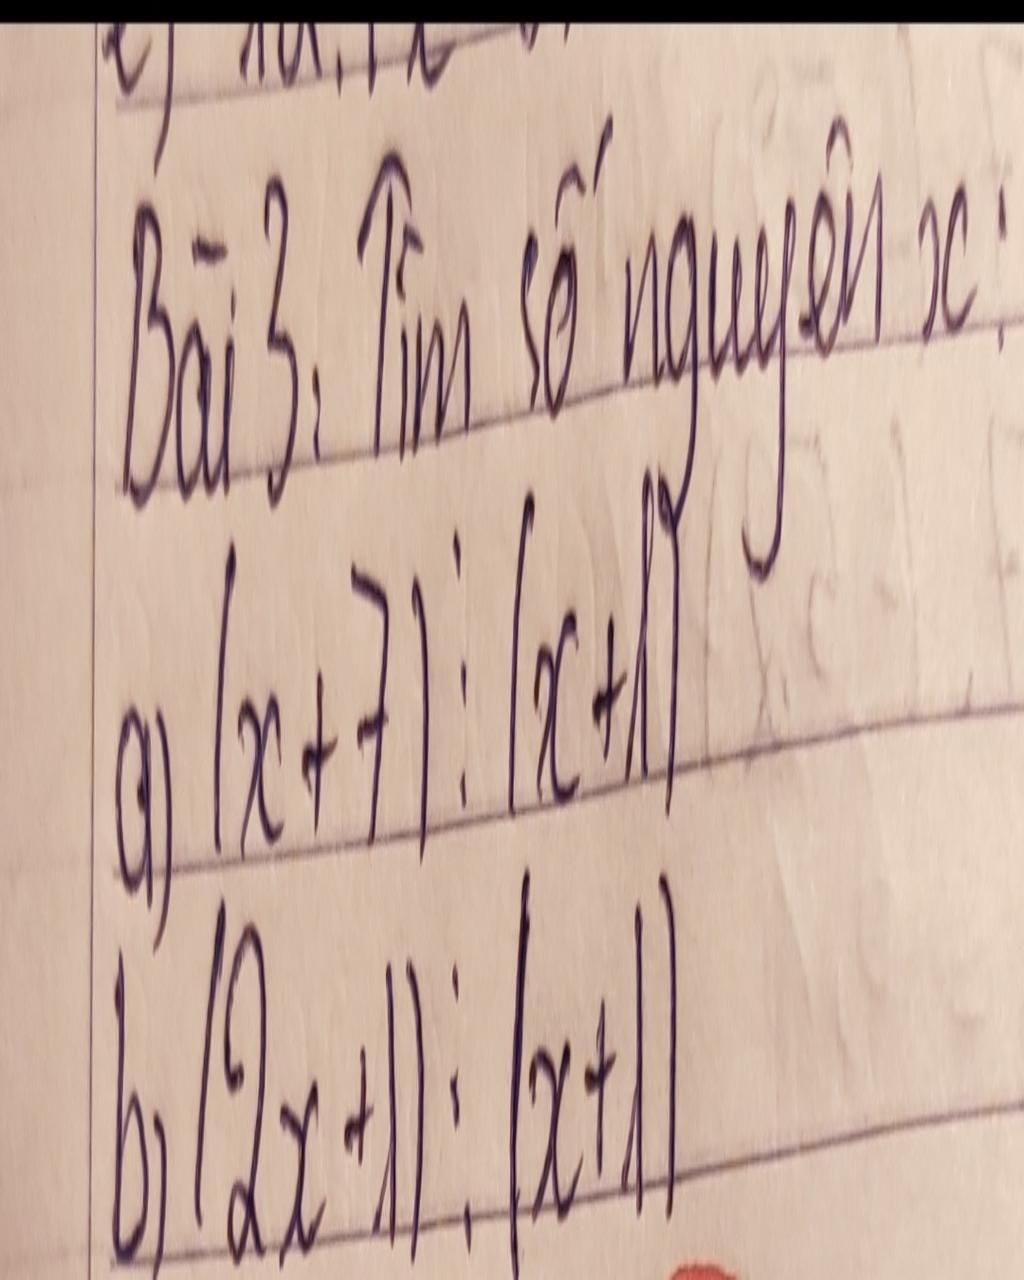 Bài 3. Tìm số nguyên x:
a) (x+7) ⋮ (x+1)
b) (2x+1) ⋮ (x+1)